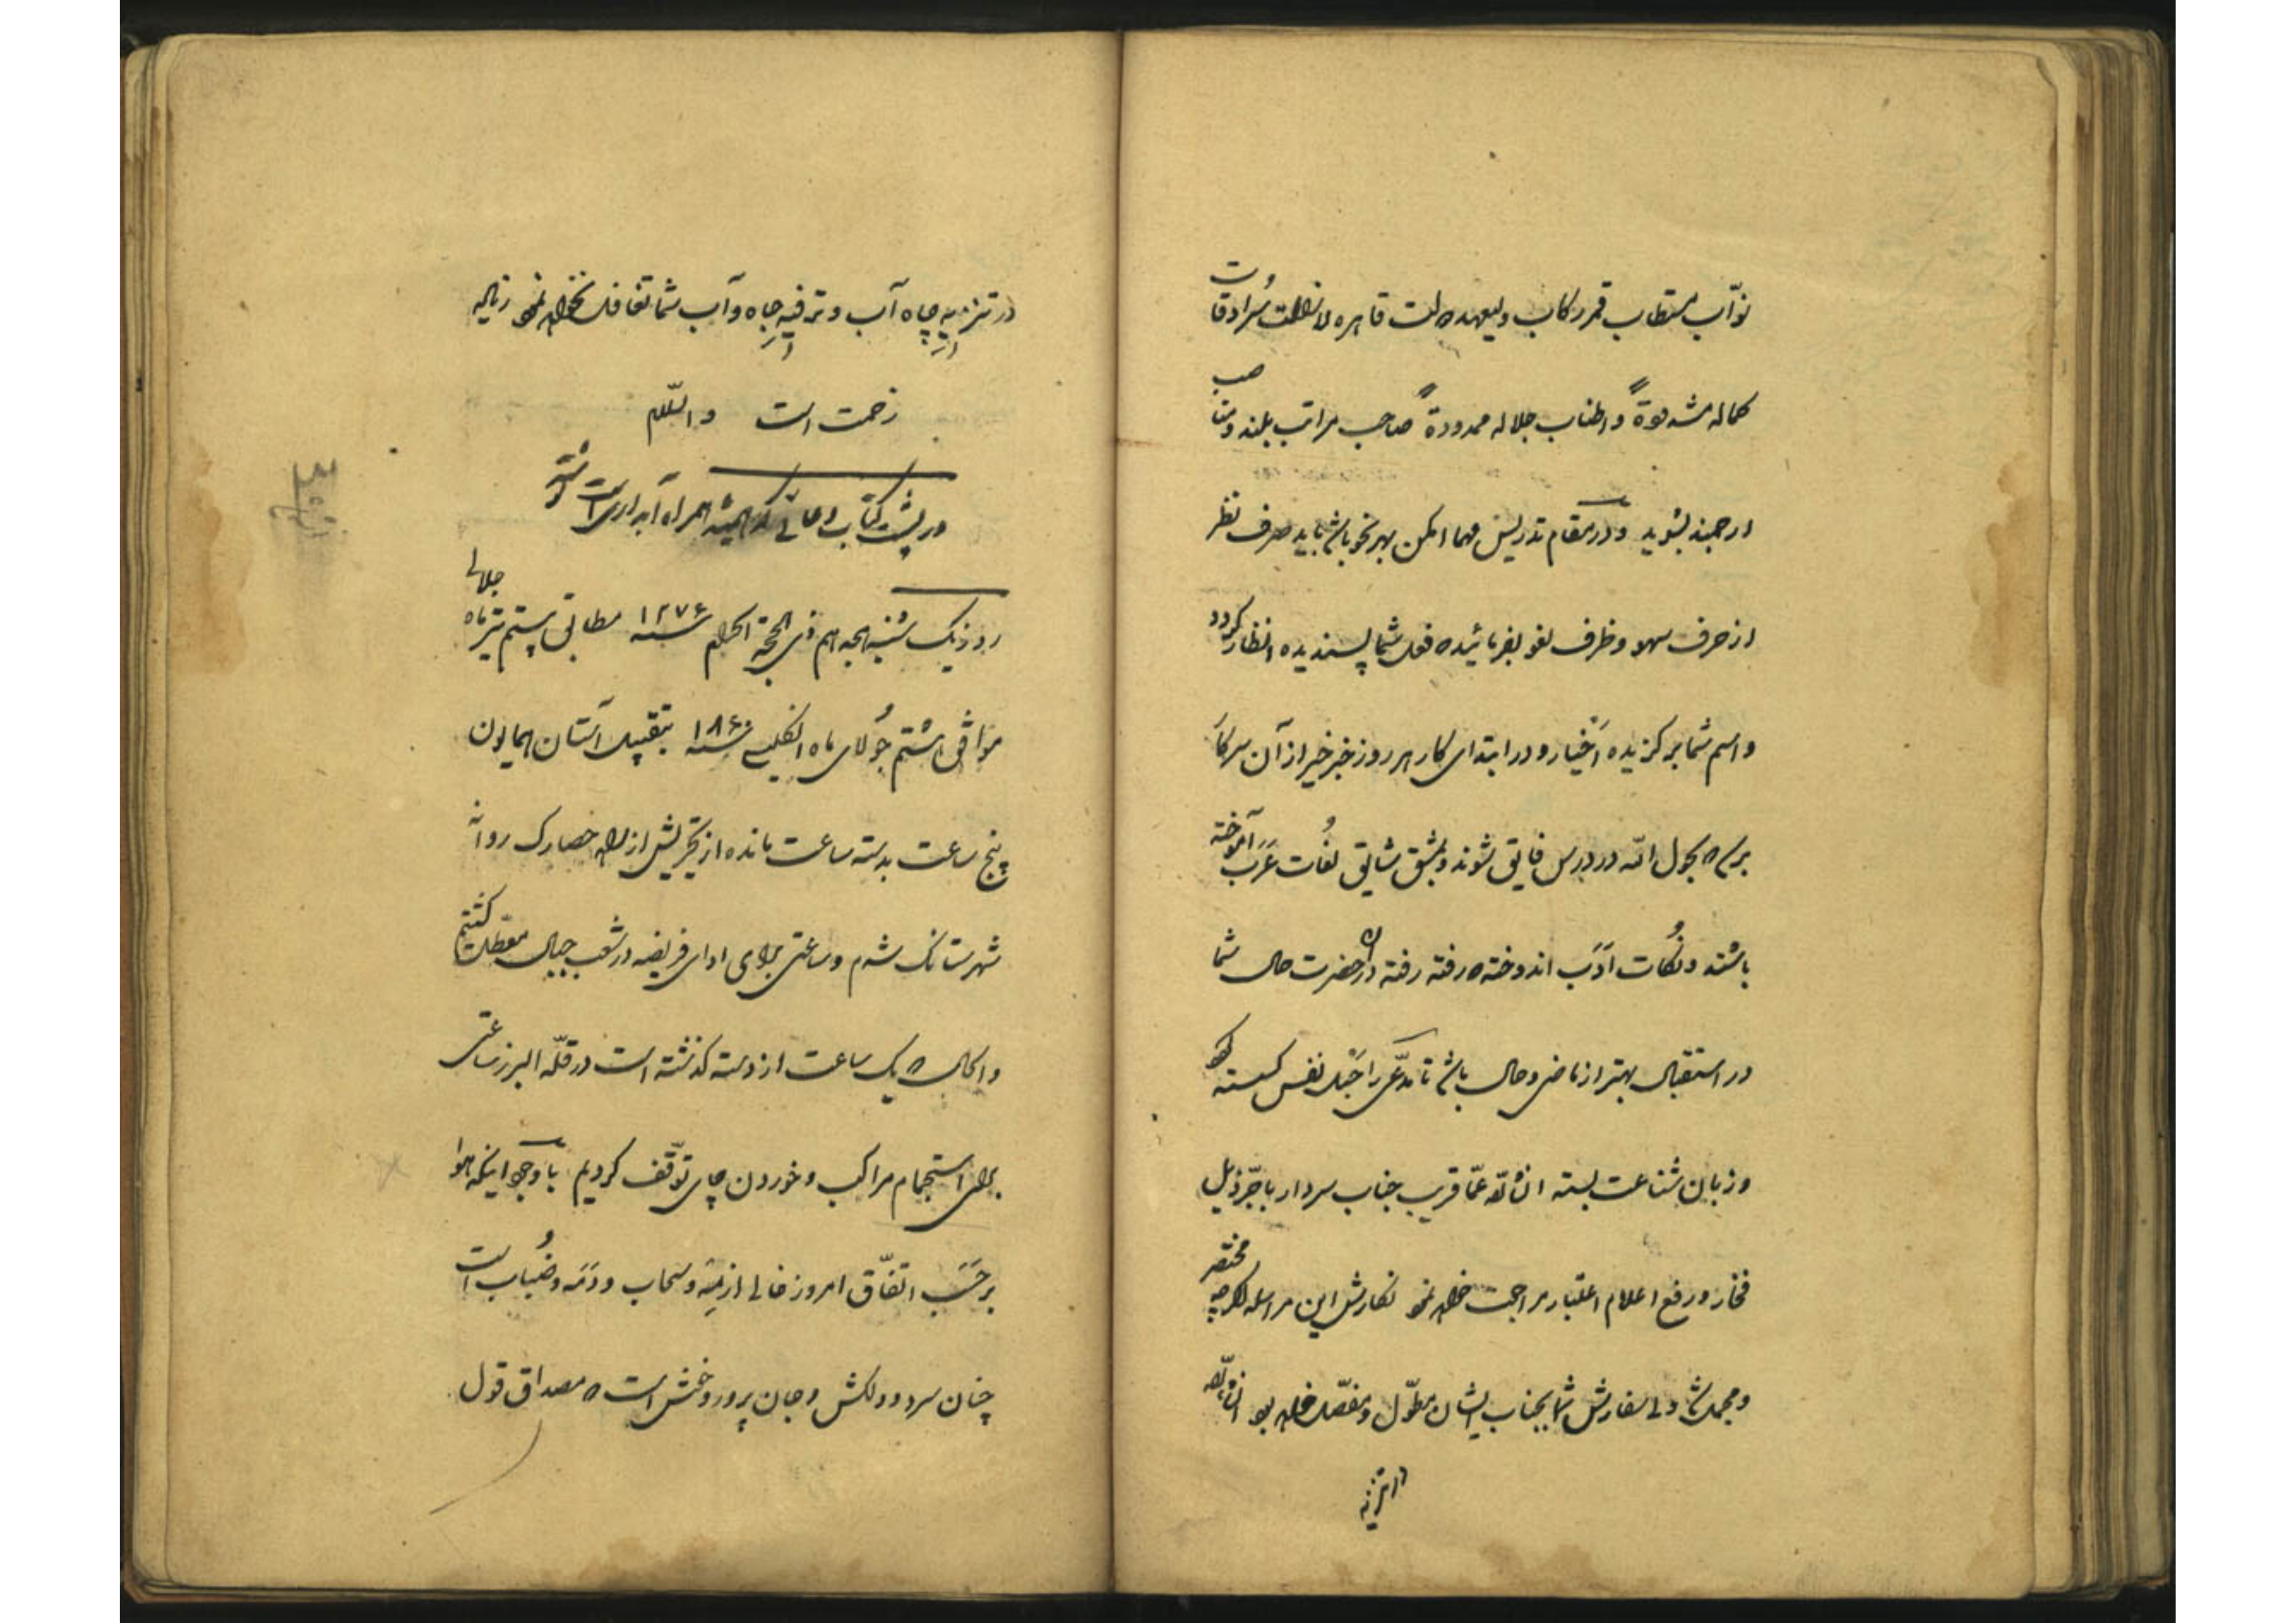 نوّاب مستطاب قمر رکاب ولیعهد دولت قاهره لا زالت سُرادقات
کماله مشدودةً و اطناب جلاله ممدودةً صاحب مراتب بلند و مناصب
ارجمند بشوید و در مقام تدریس مهما امکن بهر نحو باشد باید صرف نظر
از حرف سهو و ظرف لغو بفرمائید که فعل شما پسندیده انظار گردد
و اسم شما برگزیده اَخیار و در ابتدای کار هر روز خبر خیر از آن سرکار
برسد که بحول الله در درس فایق شوند و بمشق شایق لغات عَرَب آموخته
باشند و نُکات اَدَب اندوخته که رفته رفته در آنحضرت حال شما
در استقبال بهتر از ماضی و حال باشد تا مدّعی را حَبل نفس گسسته
و زبان شناعت بسته انشاالله عمّا قریب جناب سردار با جرّ ذیل
فخار و رفع اعلام اعتبار مراجعت خواهد نمود نگارش این مراسله اگرچه مختصر
و مجمل شد ولی سفارش شما بجناب ایشان مطوّل و مفصّل خواهد بود انشاالله
در تنزیه
در تنزیهِ چاه آب و ترفیهِ جاه و آب شما تغافل نخواهد نمود زیاده
زحمت است والسّلام
در پشت کتاب دعائی که همیشه همراه آبداری است نوشته
روز یکشنبه هجدهم ذی الحجة الحرام سنه ۱۲۷۶ مطابق بیستم تیر ماه جلالی
موافق هشتم جُولای ماه انگلیسی سنه ۱۸۶۰ بتقبیل آستان همایون
پنج ساعت بدسته ساعت مانده از تجریش از راه حصارک روانه
شهرستانک شدم و ساعتی برای ادای فریضه در شعب جبال معطّل گشتیم
و الحال که یک ساعت از دسته گذشته است در قلّه البرز ساعتی
برای استجمام مراکب و خوردن چای توقّف کردیم با وجود اینکه هوا
بر حَسَب اتفّاق امروز خالی از میغ و سحاب و دَمَه و ضُباب است
چنان سرد و دلکش و جان پرور و خوش است که مصداق قول